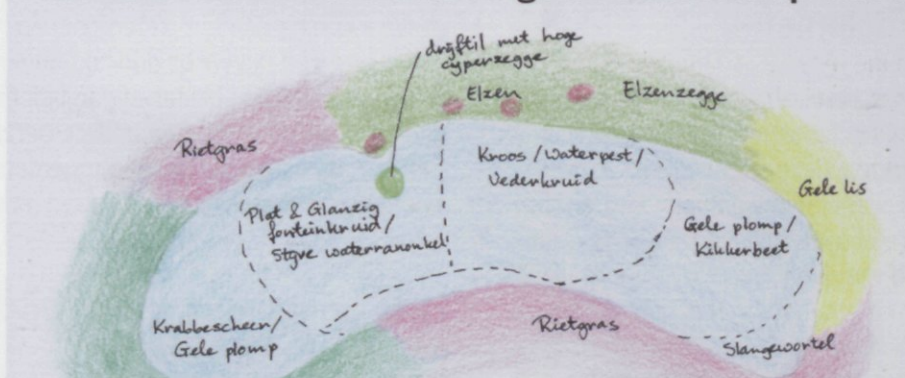 drijftil met hoge
cyperzegge
Elzen
Elzenzegge
Rietgras
Kroos / Waterpest /
Vederkruid
Gele lis
Plat & Glanzig
fonteinkruid /
Styve waterranonkel
Gele plomp /
Kikkerbeet
Krabbescheer /
Gele plomp
Rietgras
Slangewortel